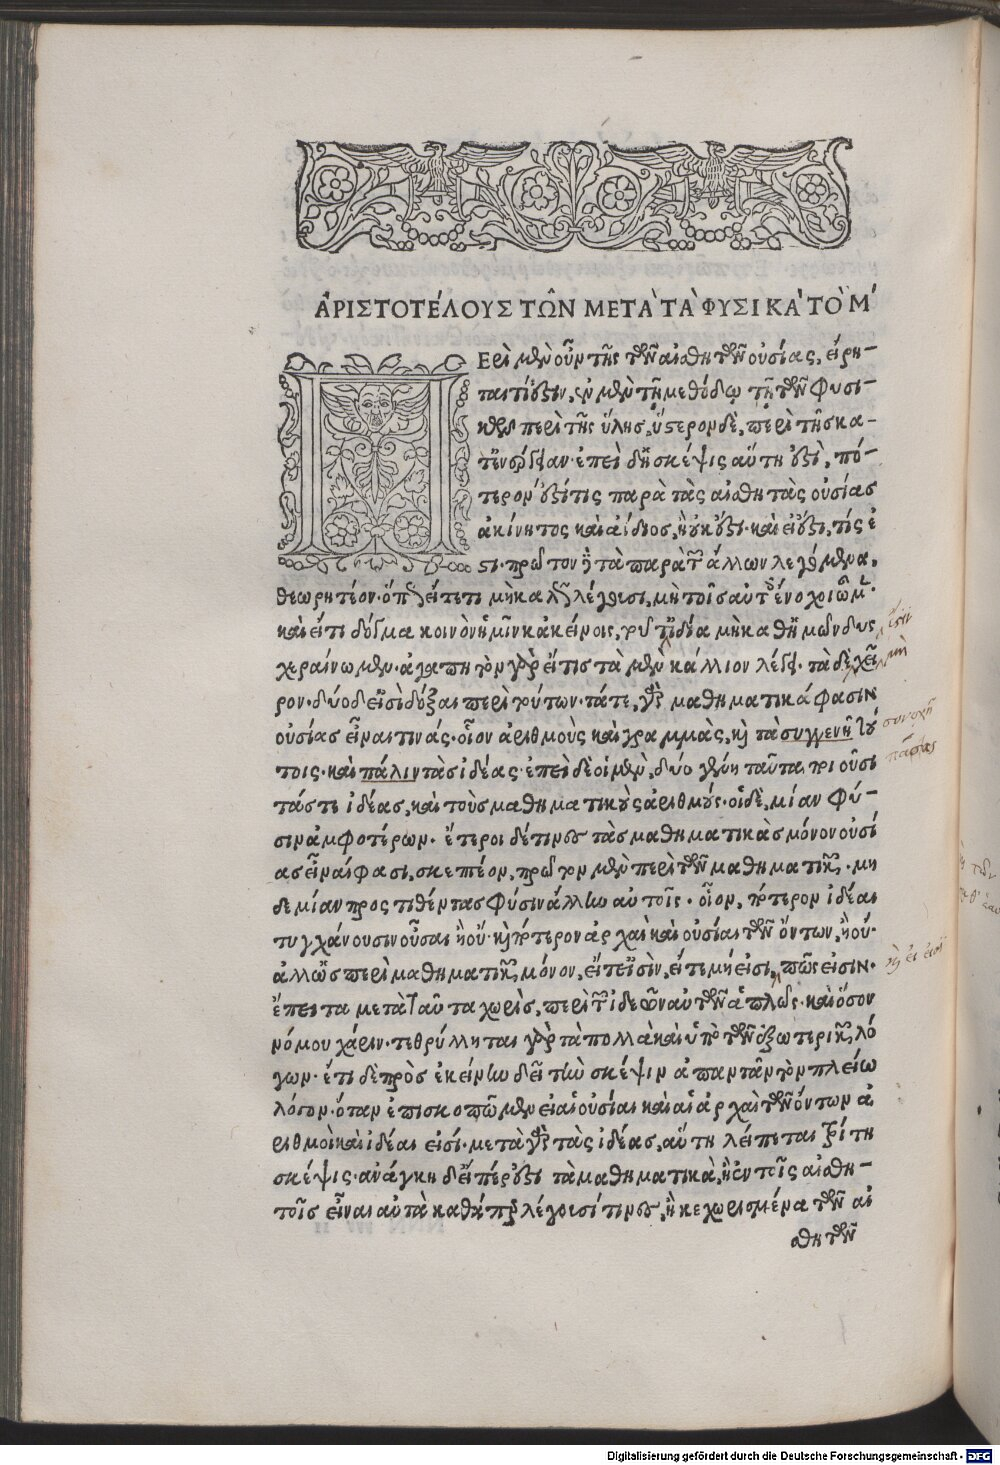 ἈΡΙΣΤΟΤΈΛΟΥΣ ΤΩ͂Ν ΜΕΤᾺ ΤᾺ ΦΥΣΙΚᾺ ΤῸ Μ΄
ΠΕρὶ μὲν οὖν τῆς τῶν αἰσθητῶν οὐσίας, εἴρη-
ται τίς ἐστιν, ἐν μὲν τῇ μεθόδῳ τῇ τῶν φυσι-
κῶν περὶ τῆς ὕλης, ὕστερον δὲ, περὶ τῆς κα-
τ' ἐνέργειαν· ἐπεὶ δ' ἡ σκέψις αὕτη ἐστὶ, πό-
τερον ἐστί τις παρὰ τὰς αἰσθητὰς οὐσίας
ἀκίνητος καὶ ἀΐδιος, ἢ οὐκ ἔστι· καὶ εἰ ἔστι, τίς ἐ
στι· πρῶτον τὰ παρὰ τῶν ἄλλων λεγόμενα,
θεωρητέον· ὅπως εἴτε τι μὴ καλῶς λέγουσι, μὴ τοῖς αὐτοῖς ἔνοχοι ὦμεν·
καὶ εἴ τι δόγμα κοινὸν ἡμῖν κἀκείνοις, τοῦτ' ἰδία μὴ καθ' ἡμῶν δυς
χεραίνωμεν· ἀγαπητὸν γὰρ εἴ τις τὰ μὲν κάλλιον λέγει· τὰ δὲ χεῖ
ρον· δύο δ' εἰσὶ δόξαι περὶ τούτων· τά τε γὰρ μαθηματικά φασιν
οὐσίας εἶναι τινάς· οἷον ἀριθμοὺς καὶ γραμμὰς, καὶ τὰ συγγενῆ τού
τοις· καὶ πάλιν τὰς ἰδέας· ἐπεὶ δὲ οἱ μὲν, δύο γένη ταῦτα ποιοῦσι
τάς τε ἰδέας, καὶ τοὺς μαθηματικοὺς ἀριθμούς· οἱ δὲ, μίαν φύ-
σιν ἀμφοτέρων· ἕτεροι δέ τινες τὰς μαθηματικὰς μόνον οὐσί
ας εἶναί φασι, σκεπτέον, πρῶτον μὲν περὶ τῶν μαθηματικῶν· μη
δεμίαν προστιθέντας φύσιν ἄλλην αὐτοῖς· οἷον, πότερον ἰδέαι
τυγχάνουσιν οὖσαι ἢ οὔ· καὶ πότερον ἀρχαὶ καὶ οὐσίαι τῶν ὄντων, ἢ οὔ·
ἀλλ' ὡς περὶ μαθηματικῶν μόνον, εἴτε εἰσὶν, εἴτε μή εἰσι, πῶς εἰσιν·
ἔπειτα μετὰ ταῦτα χωρὶς, περὶ τῶν ἰδεῶν αὐτῶν ἁπλῶς· καὶ ὅσον
νόμου χάριν· τεθρύλληται γὰρ τὰ πολλὰ καὶ ὑπὸ τῶν ἐξωτερικῶν λό
γων· ἔτι δὲ πρὸς ἐκείνην δεῖ τὴν σκέψιν ἀπαντᾶν τὸν πλείω
λόγον· ὅταν ἐπισκοπῶμεν εἰ αἱ οὐσίαι καὶ αἱ ἀρχαὶ τῶν ὄντων ἀ
ριθμοὶ καὶ ἰδέαι εἰσί· μετὰ γὰρ τὰς ἰδέας, αὕτη λείπεται τρίτη
σκέψις· ἀνάγκη δ' εἴπερ ἐστὶ τὰ μαθηματικὰ, ἢ ἐν τοῖς αἰσθη-
τοῖς εἶναι αὐτὰ καθάπερ λέγουσί τινες, ἢ κεχωρισμένα τῶν αἰ
σθητῶν
Digitalisierung gefördert durch die Deutsche Forschungsgemeinschaft - DFG